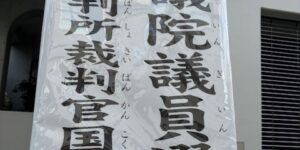 議院議員選
いんぎいん
判所裁判官国
ばんしょさいばんかんこく